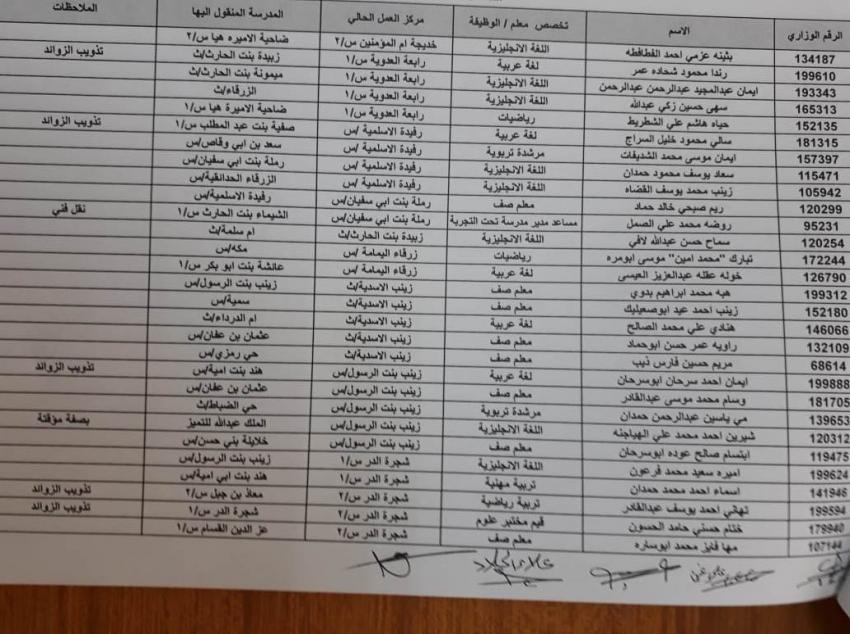 الرقم الوزاري الاسم تخصص معلم / الوظيفة مركز العمل الحالي المدرسة المنقول اليها الملاحظات
134187 بثينه عزمي احمد الفطافطه اللغة الانجليزية خديجة ام المؤمنين س/٢ ضاحية الاميره هيا س/٢
199610 رندا محمود شحاده عمر لغة عربية رابعة العدوية س/١ زبيدة بنت الحارث/ث تذويب الزوائد
193343 ايمان عبدالمجيد عبدالرحمن عبدالرحمن اللغة الانجليزية رابعة العدوية س/١ ميمونة بنت الحارث/ث
165313 سهى حسين زكي عبدالله اللغة الانجليزية رابعة العدوية س/١ الزرقاء/ث
152135 حياه هاشم علي الشطريط رياضيات رابعة العدوية س/١ ضاحية الاميرة هيا س/١
181315 سالي محمود خليل السراج لغة عربية رفيدة الاسلمية /س صفية بنت عبد المطلب س/١ تذويب الزوائد
157397 ايمان موسى محمد الشديفات مرشدة تربوية رفيدة الاسلمية /س سعد بن ابي وقاص/س
115471 سعاد يوسف محمود حمدان اللغة الانجليزية رفيدة الاسلمية /س رملة بنت ابي سفيان/س
105942 زينب محمد يوسف القضاه اللغة الانجليزية رفيدة الاسلمية /س الزرقاء الحدائقية/س
120299 ريم صبحي خالد حماد معلم صف رملة بنت ابي سفيان/س رفيدة الاسلمية/س
95231 روضه محمد علي الصمل مساعد مدير مدرسة تحت التجربة رملة بنت ابي سفيان/س الشيماء بنت الحارث س/١ نقل فني
120254 سماح حسن عبدالله لافي اللغة الانجليزية زبيدة بنت الحارث/ث ام سلمة/ث
172244 تبارك "محمد امين" موسى ابومره رياضيات زرقاء اليمامة /س مكه/س
126790 خوله عقله عبدالعزيز العيسى لغة عربية زرقاء اليمامة /س عائشة بنت ابو بكر س/١
199312 هبه محمد ابراهيم بدوي معلم صف زينب الاسدية/ث زينب بنت الرسول/س
152180 زينب احمد عيد ابوصعيليك معلم صف زينب الاسدية/ث سمية/س
146066 هنادي علي محمد الصالح لغة عربية زينب الاسدية/ث ام الدرداء/ث
132109 راويه عمر حسن ابوحماد معلم صف زينب الاسدية/ث عثمان بن عفان/س
68614 مريم حسين فارس ذيب معلم صف زينب الاسدية/ث حي رمزي/س
199888 ايمان احمد سرحان ابوسرحان لغة عربية زينب بنت الرسول/س هند بنت امية/س تذويب الزوائد
181705 وسام محمد موسى عبدالقادر معلم صف زينب بنت الرسول/س عثمان بن عفان/س
139653 مي ياسين عبدالرحمن حمدان مرشدة تربوية زينب بنت الرسول/س حي الضباط/ث
120312 شيرين احمد محمد علي الهياجنه اللغة الانجليزية زينب بنت الرسول/س الملك عبدالله للتميز بصفة مؤقتة
119475 ابتسام صالح عوده ابوسرحان معلم صف زينب بنت الرسول/س خلايلة بني حسن/س
199624 اميره سعيد محمد فرعون اللغة الانجليزية شجرة الدر س/١ زينب بنت الرسول/س
141946 اسماء احمد محمد حمدان تربية مهنية شجرة الدر س/١ هند بنت ابي امية/س
199594 تهاني احمد يوسف عبدالقادر تربية رياضية شجرة الدر س/٢ معاذ بن جبل س/٢ تذويب الزوائد
178940 ختام حسني حامد الحسون قيم مختبر علوم شجرة الدر س/٢ شجرة الدر س/١ تذويب الزوائد
107144 مها فايز محمد ابوساره معلم صف شجرة الدر س/٢ عز الدين القسام س/١